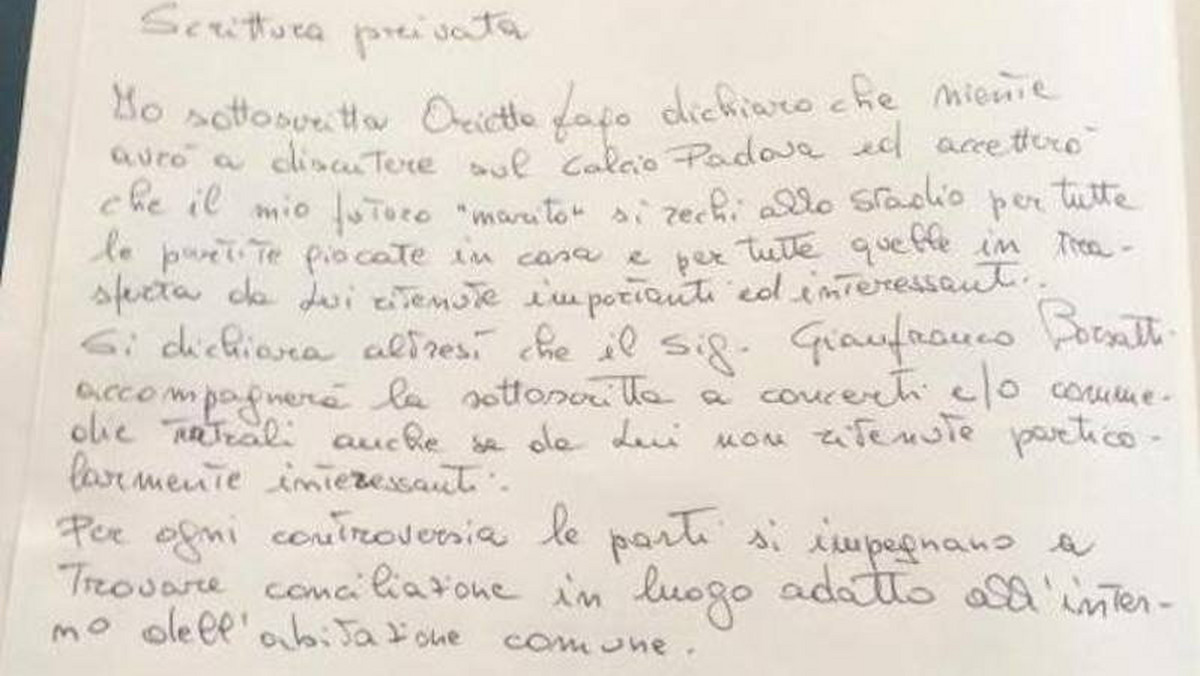 Scrittura privata
Io sottoscritta Orietta fafo dichiaro che niente
avrò a discutere sul calcio Padova ed accetterò
che il mio futuro "marito" si rechi allo stadio per tutte
le partite giocate in casa e per tutte quelle in tra-
sferta da lui ritenute importanti ed interessanti.
Si dichiara altresì che il sig. Gianfranco Borsatti
accompagnerà la sottoscritta a concerti e/o comme-
die teatrali anche se da lui non ritenute partico-
larmente interessanti.
Per ogni controversia le parti si impegnano a
trovare conciliazione in luogo adatto all'inter-
no dell'abitazione comune.